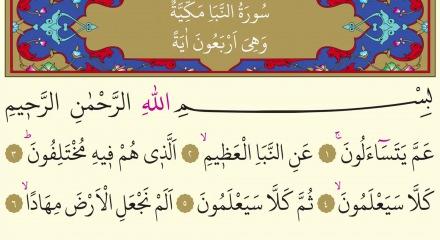 سُورَةُ النَّبَإِ مَكِّيَّةٌ
وَهِىَ اَرْبَعُونَ اٰيَةً
بِسْــــــــمِ اللهِ الرَّحْمٰنِ الرَّحٖيمِ
عَمَّ يَتَسَٓاءَلُونَۚ ﴿١﴾ عَنِ النَّبَأِ الْعَظٖيمِۙ ﴿٢﴾ اَلَّذٖى هُمْ فٖيهِ مُخْتَلِفُونَؕ ﴿٣﴾
كَلَّا سَيَعْلَمُونَۙ ﴿٤﴾ ثُمَّ كَلَّا سَيَعْلَمُونَ ﴿٥﴾ اَلَمْ نَجْعَلِ الْاَرْضَ مِهَادًاۙ ﴿٦﴾